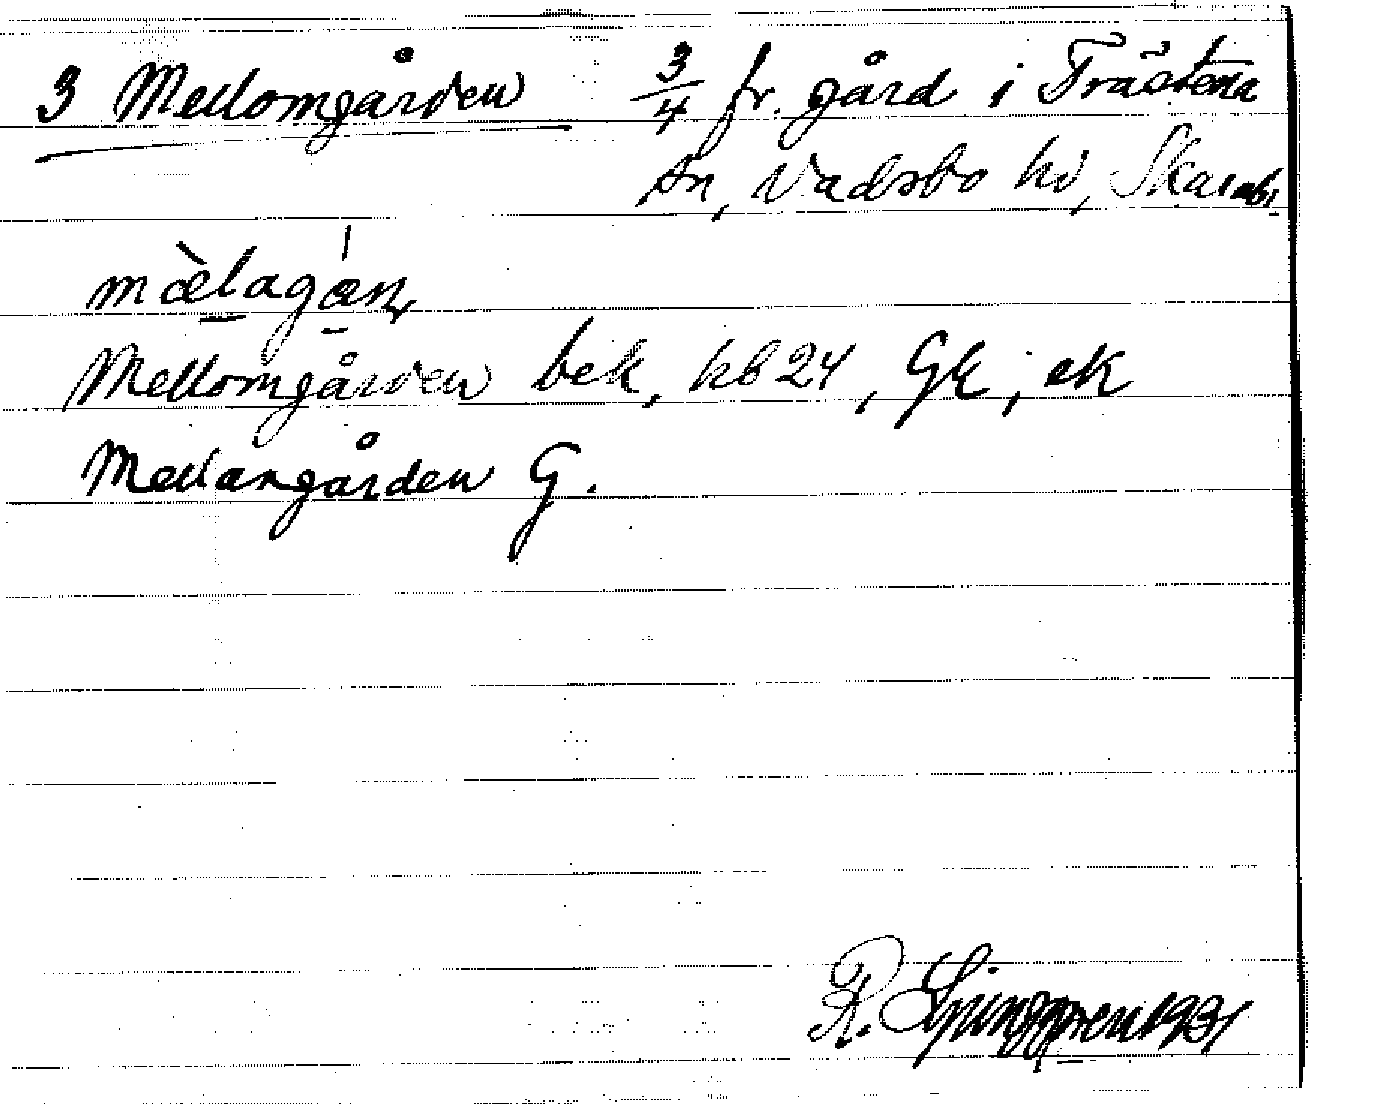 3 Mellomgården 3/4 fr. gård i Trästena
sn, Vadsbo hd, Skarabs.
mæ̀lagá̍ɳ
Mellomgården bek, kb 24, GK, ek
Mellangården G.
R. Ljunggren 1931